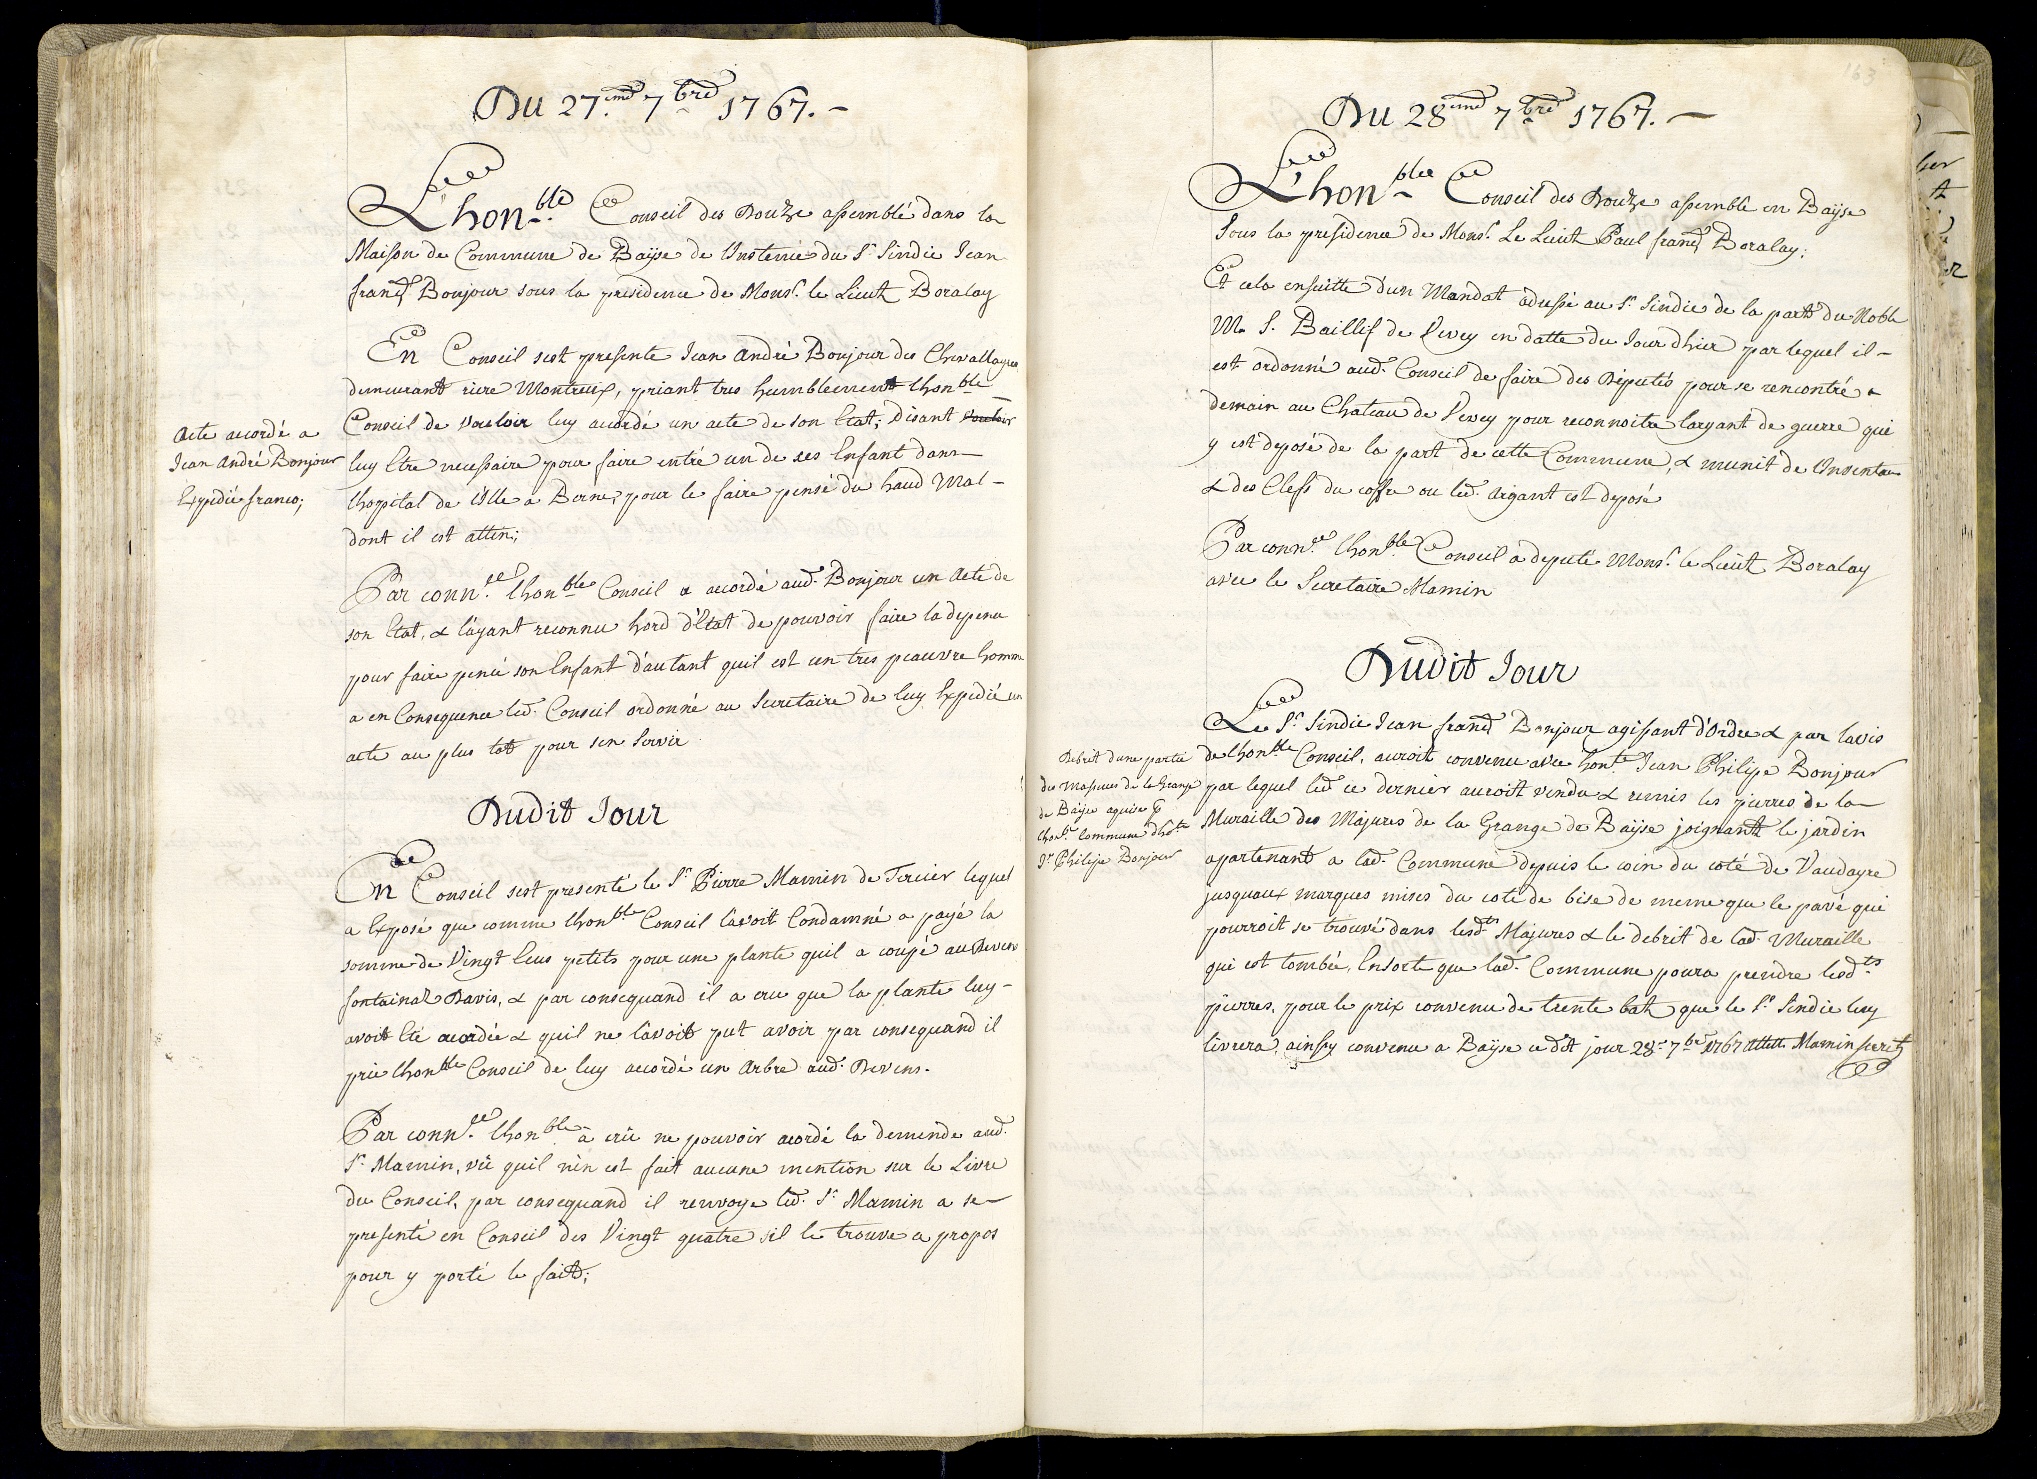 Du 27.eme 7bre 1767. –
L'honble Conseil des Douze assemblé dans la
Maison de Commune de Baÿse de L'instence du Sr Sindic Jean
frança Bonjour sous la presidence de Monsr. le Lieut Boralay
En Conseil sest presenté Jean André Bonjour des Chevalleyres
demeurant riere Montreux, priant tres humblement Lhonble
Conseil de vouloir luy accordé un acte de son Etat; disant vouloir
luy Etre necessaire pour faire entré un de ses Enfant dans
lhopital de L'isle a Berne, pour le faire pensé du haud Mal –
dont il est attin;
Acte accordé a
Jean André Bonjour
Expedié franco;
Par conn.ce lhonble Conseil a accordé aud. Bonjour un Acte de
son Etat, & L'ayant reconnu hord d'Etat de pouvoir faire la depence
pour faire pencé son Enfant d'autant quil est un tres peauvre homme
a en Consequence led. Conseil ordonné au Secretaire de luy Expedié un
acte au plus tot pour sen Servir
Dudit Jour
En Conseil sest presenté le Sr Pierre Mamin de Tercier lequel
a Exposé que comme lhonble Conseil l'avoit Condamné a payé la
somme de Vingt Ecus petits pour une plante quil a coupé au Devens
fontaina Davis, & par consequand il a cru que la plante luy –
avoit Eté acordée & quil ne l'avoit put avoir par consequand il
prie lhonble Conseil de luy accordé un Arbre aud. Devens.
Par conn.ce lhonble a crû ne pouvoir acordé la demende aud.
Sr. Mamin, vû quil nên est fait aucune mention sur le Livre
du Conseil, par consequand il renvoye led. Sr Mamin a se –
presenté en Conseil des Vingt quatre sil le trouve a propos
pour y porté le fait;
163
Du 28eme 7bre 1767. –
L'honble Conseil des Douze assemblé en Baÿse
Sous la presidence de Monsr. Le Lieut Paul franç Boralay;
Et cela ensuitte d'un Mandat adressé au Sr. Sindic de la part du Noble
M. S. Baillif de Vevey en datte du Jour dhier par lequel il –
est ordonné aud. Conseil de faire des Députés pour se rencontré
demain au Chateau de Vevey pour reconnoitre largant de guerre qui
y est deposé de la part de cette Commune, & munit de
& des Clefs du coffre ou led. Argant est deposé
Par conn.ce lhonble Conseil a deputé Monsr. le Lieut Boralay
avec le Secretaire Mamin
Dudit Jour
Le Sr. Sindic Jean franç Bonjour agissant d'Ordre & par lavis
de lhonble Conseil, auroit convenu avec honte. Jean Philipe Bonjour
par lequel led ce dernier auroit vendu & remis les pierres de la –
Muraille des Majures de la Grange de Baÿse joignant le jardin
apartenant a lad. Commune depuis le coin du coté de Vaudayre
jusquaux marques mises du coté de bise de meme que le pavé qui
pourroit se trouvé dans lesdts Majures & le debrit de lad. Muraille
qui est tombée, Ensorte que lad. Commune poura prendre lesdts
pierres, pour le prix convenu de trente bat que le Sr Sindic luy
livrera, ainsy convenu a Baÿse ce dit jour 28e 7bre 1767 Attest. Mamin secret
Debrit dune partie
des Masures de la Grange
de Baÿse aquise p
lhonb Commune d'hte
Jn Philipe Bonjour